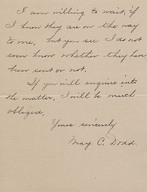 I am willing to wait, if
I know they are on the way
to me, but you see I do not
even know whether they have
been sent or not.
If you will enquire into
the matter, I will be much
obliged.
Yours sincerely
May C. Dodd.